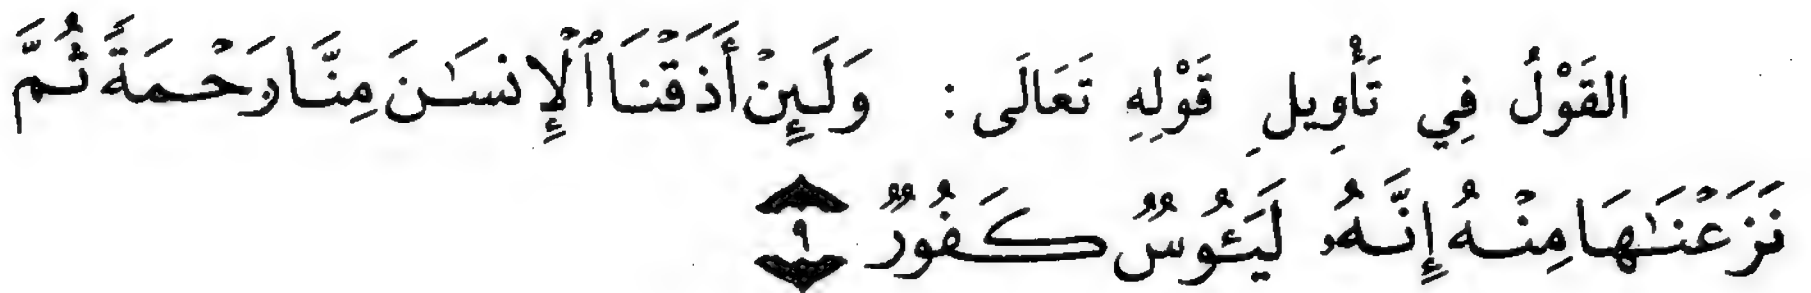 القَوْلُ فِي تَأْوِيلِ قَوْلِهِ تَعَالَى : وَلَئِنْ أَذَقْنَا ٱلْإِنسَـٰنَ مِنَّا رَحْمَةً ثُمَّ
نَزَعْنَـٰهَا مِنْهُ إِنَّهُۥ لَيَـُٔوسٌ كَفُورٌ ٩